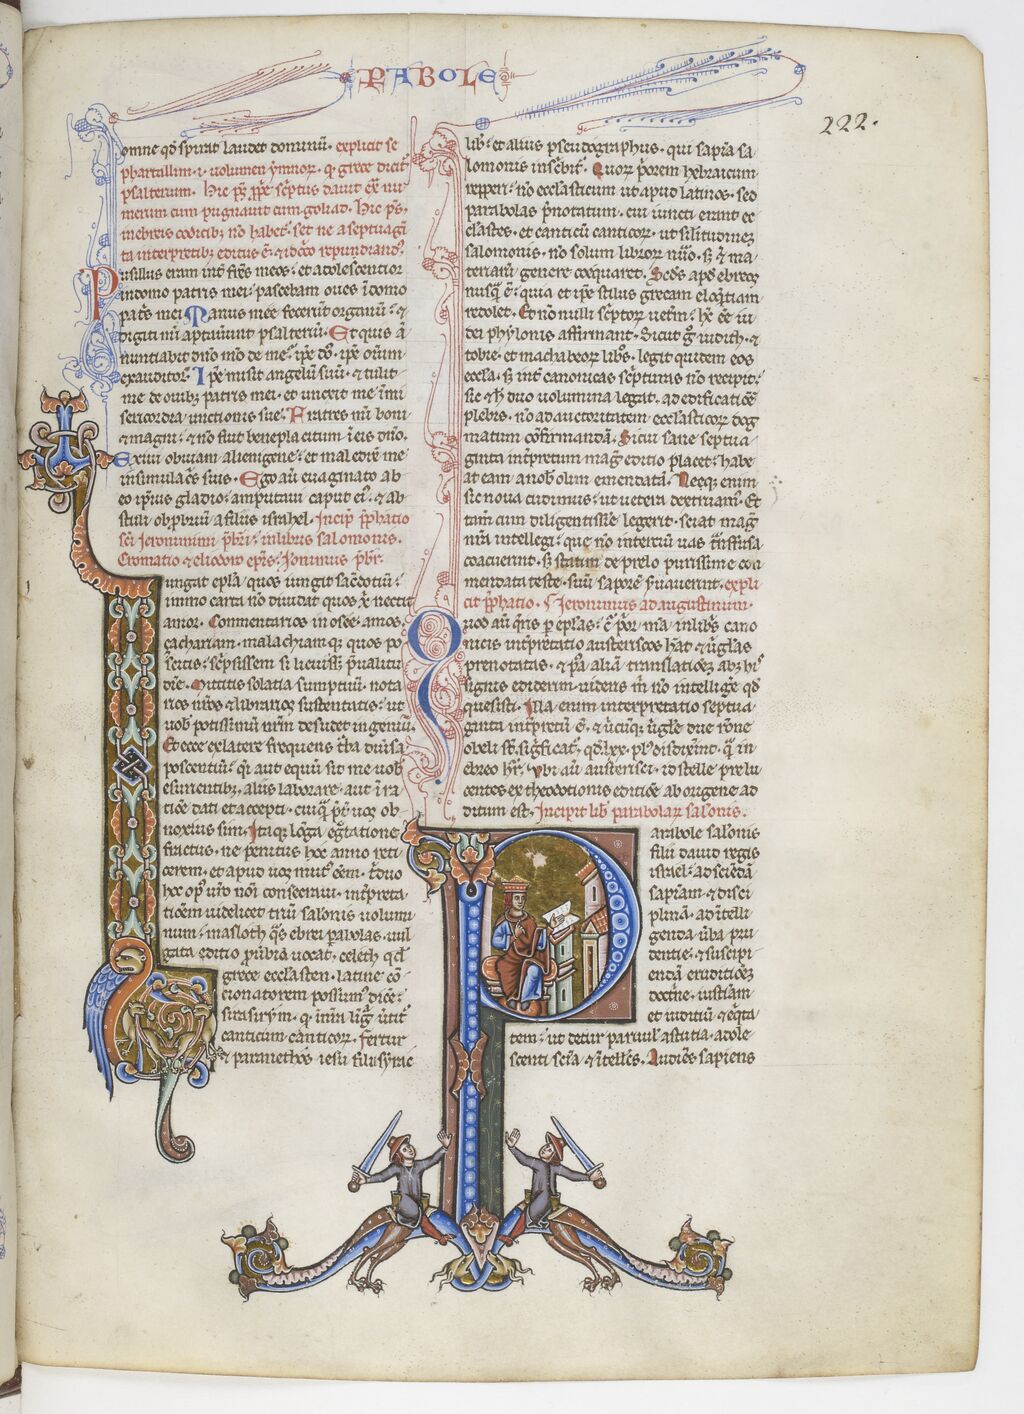 PARBOLE
222.
omne qd spirat laudet dominum. explicit se
phartallim .i. volumen ymnor. q grece dicit
psalterium. Hic ps. ppe scptus dauit ex nu
merum cum pugnauit cum goliad. Hic ps.
inebreis codicib; no habet. set ne a septuagi
ta interpretib; editus e. & idcco repudiand.
Pusillus eram int fres meos. et adolescentior
indomo patris mei. pascebam oues idomo
patis mei. Manus mee fecerut organum. &
digiti mi aptauerut psalterium. Et quis a
nuntiabit dno mo de me. ipe do. ipe oium
exauditor. Ipe misit angelu suu. & tulit
me de ouib; patris mei. et uncxit me i mi
sericordia unctionis sue. Fratres mi boni
& magni. & no fuit beneplacitum i eis dno.
Exiui obuiam alienigene. et maledix me
insimulacs suis. Ego au euaginato ab
eo ipius gladio. amputaui caput ei. & ab
stuli obpbriu a filiis israhel. Incip pphatio
sci Ieronimi pbri. inlibris salomonis.
Cromatio & eliodoro epis. Ieronimus pbr.
ungat epla quos iungit sacdotiu.
immo carta no diuidat quos x nectit
amor. Commentarios in osee. amos.
zachariam. malachiam qr quos po
scitis. scpsissem si licuiss; p ualitu
die. Mittitis solatia sumptuu. nota
rios nros & librarios sustentatis. ut
uob potissimu nrm desudet ingeniu.
Et ecce ex latere frequens tba diusa
poscentiu. qi aut equu sit me uob
esurientib; aliis laborare. aut i ra
tioe dati et accepti. cuiq pt uos ob
noxius sim. Itaq; loga egtatione
fractus. ne penitus hoc anno reti
cerem. et apud uos mut eem. tduo
hoc op uro noi consecraui. intpreta
tioem uidelicet triu salonis uolumi
num. masloth qs ebrei pabolas. uul
gata editio puibia uocat. celeth qd
grece ecclasten. latine co
cionatorem possum dice.
sirasirym. q inia lig uertit
canticum canticor. Fertur
& panarethos iesu filii syrac
lib. et alius pseudographus. qui sapia sa
lomonis inscbit. Quor porem hebraicum
repperi. no ecclasticum ut apud latinos. sed
parabolas pnotatum. cui iuncti erant ec
clastes. et canticu canticor. ut silitudinez
salomonis. no solum libror nuo. s; & ma
teriaru genere coequaret. Scds apd ebreos
nusq e. quia et ipe stilus grecam eloqtiam
redolet. Et nonnulli sciptor uetm. hc ee iu
dei phylonis affirmant. Sicut g iudith. &
tobie. et machabeor lib. legit quidem eos
eccla. s; int canonicas scpturas no recipit.
sic & h duo uolumina legat. ad edificatioe
plebis. no ad auctoritatem ecclasticor dog
matum cofirmanda. Sicui sane septua
ginta intpretum mag editio placet. habe
at eam a nob olim emendata. Neq; enim
sic noua cudimus. ut uetera destruam. Et
tam cum diligentissie legerit. sciat mag
nra intellegi. que no interciu uas tnffusa
coacuerint. s; statim de prelo purissime com
mendata teste. suu sapore suauerint. expli
cit pphatio. Ieronimus ad augustinum.
Quod au qris p eplas. c por ma inlibs cano
nicis intpretatio austeriscos hat & uglas
prenotatas. & pa alia translatioez absq; his
signis ediderim. uideris m no intellige qd
quesisti. Illa enim interpretatio septua
ginta intpretu e. & ucuq; ugle due rone
obeli st. significat. qd lxx. pl dixint. q in
ebreo hr. Vbi au austerisci. id stelle prelu
centes ex theodotionis editioe ab origene ad
ditum est. Incipit lib parabolar salonis.
Parabole salonis
filii dauid regis
israel. ad scieda
sapiam. & disci
plina. ad itelli
genda uba pru
dentie. & suscipi
enda eruditioez
doctne. iustiam
et iudiciu & eqta
tem. ut detur paruul astutia. adole
scenti scia. & itellcs. Audies sapiens